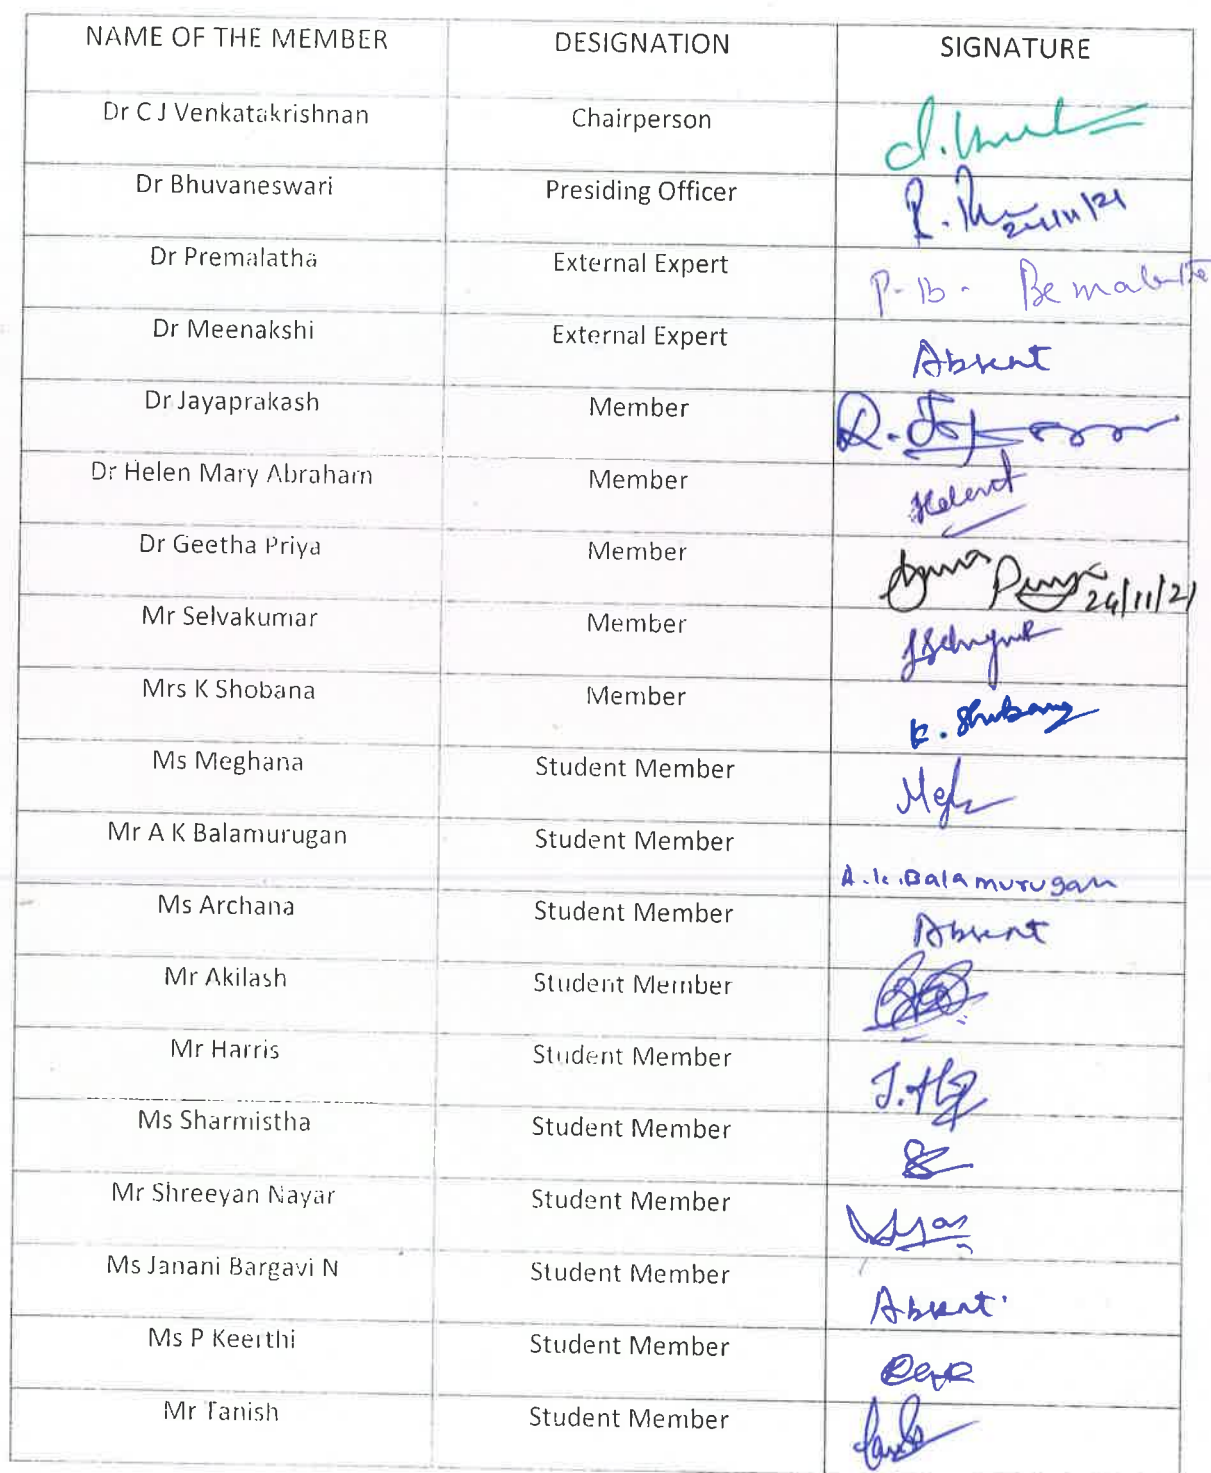 NAME OF THE MEMBER DESIGNATION SIGNATURE
Dr C J Venkatakrishnan Chairperson
Dr Bhuvaneswari Presiding Officer 24/11/21
Dr Premalatha External Expert P. B.
Dr Meenakshi External Expert Absent
Dr Jayaprakash Member
Dr Helen Mary Abraham Member
Dr Geetha Priya Member Priya 24/11/21
Mr Selvakumar Member
Mrs K Shobana Member K. Shobana
Ms Meghana Student Member
Mr A K Balamurugan Student Member A.K.Balamurugan
Ms Archana Student Member Absent
Mr Akilash Student Member
Mr Harris Student Member
Ms Sharmistha Student Member
Mr Shreeyan Nayar Student Member
Ms Janani Bargavi N Student Member Absent
Ms P Keerthi Student Member
Mr Tanish Student Member